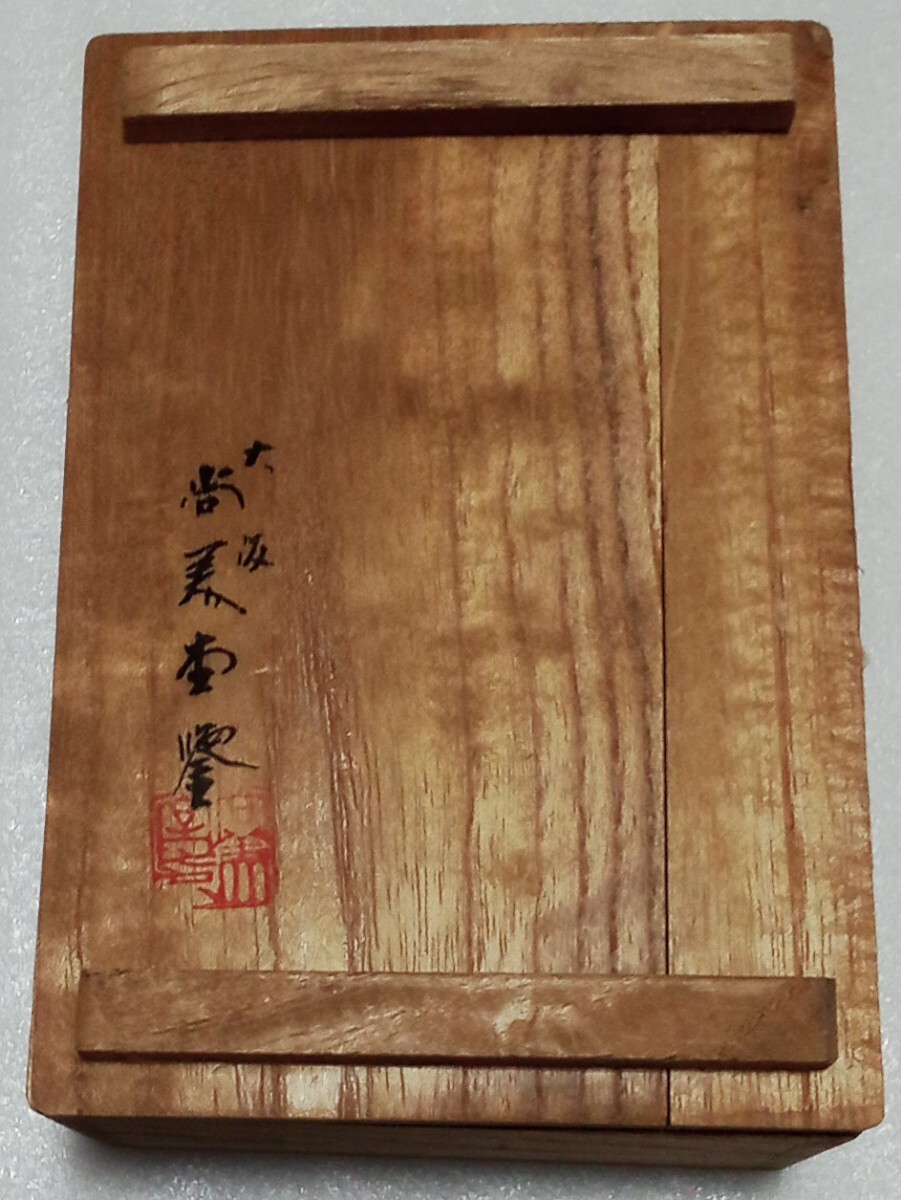 大阪
尚美堂鑒